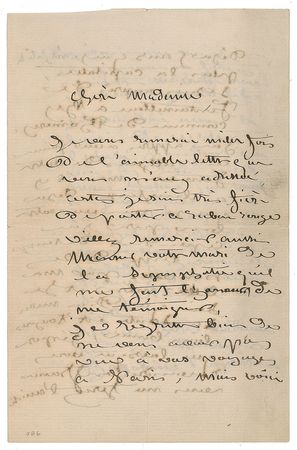 Chère Madame
Je vous remercie mille fois
de l'aimable lettre que
vous m'avez adressée
certes je suis très fier
de porter ce ruban rouge
veuillez remercier aussi
Monsieur votre mari de
la sympathie qu'il
me fait l'honneur de
me témoigner,
Je regrette bien de
ne vous avoir pas
vue à vos voyages
à Paris, mais voici